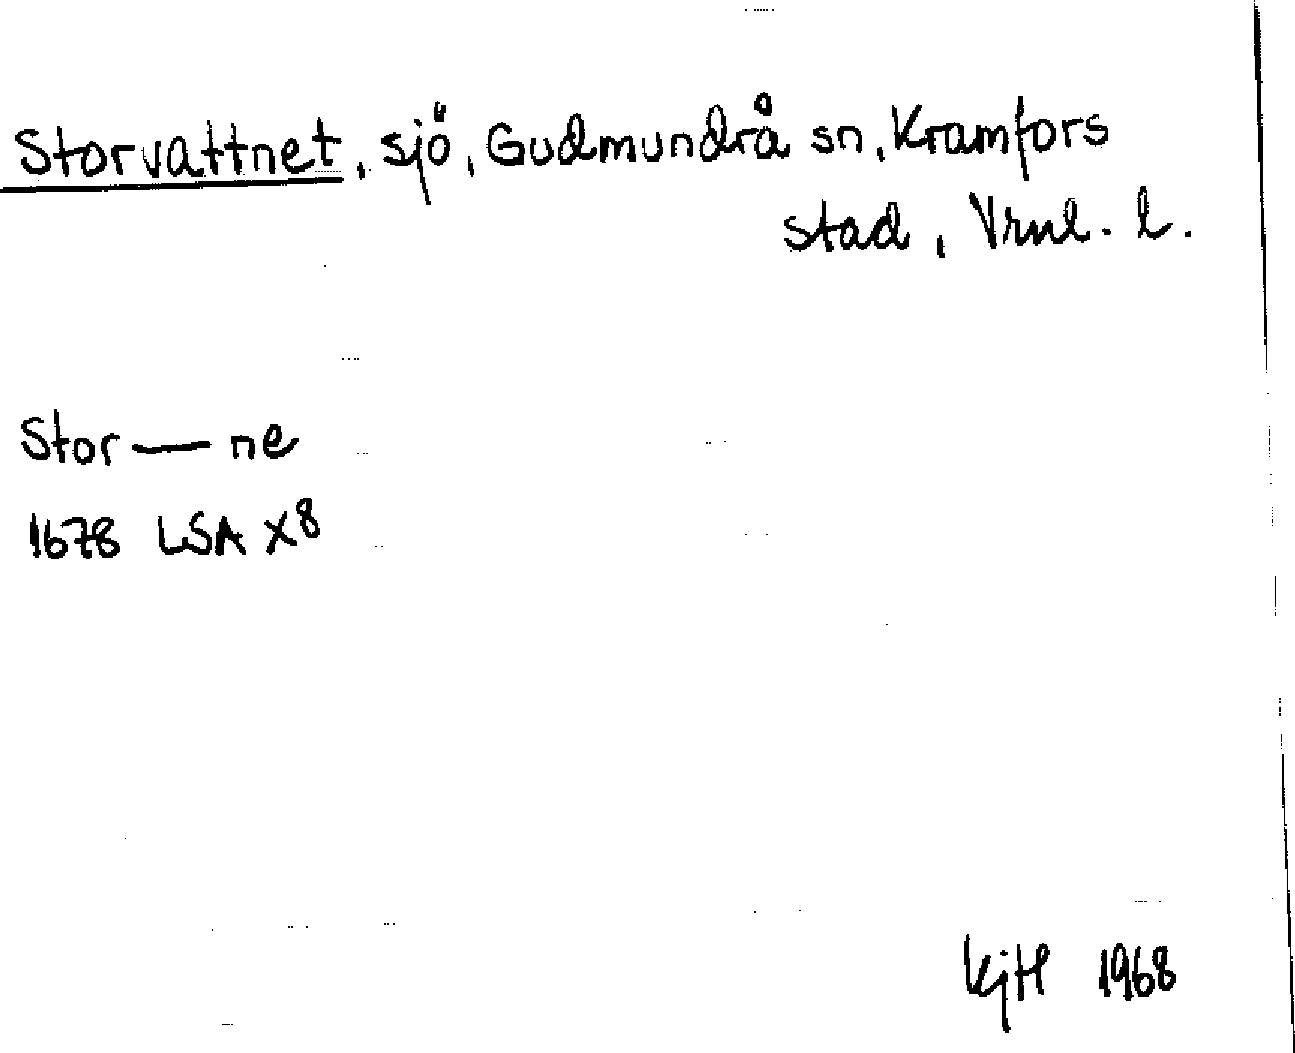 Storvattnet, sjö, Gudmundrå sn, Kramfors
stad, Vrnl. l.
Stor — ne
1678 LSA X8
KjH 1968